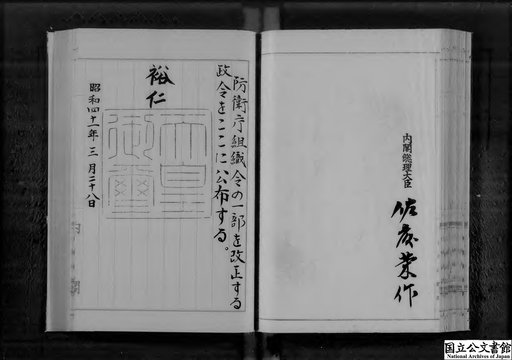 内閣総理大臣
佐藤栄作
防衛庁組織令の一部を改正する
政令をここに公布する。
裕仁
天皇
御璽
昭和四十一年三月二十八日
国立公文書館
National Archives of Japan